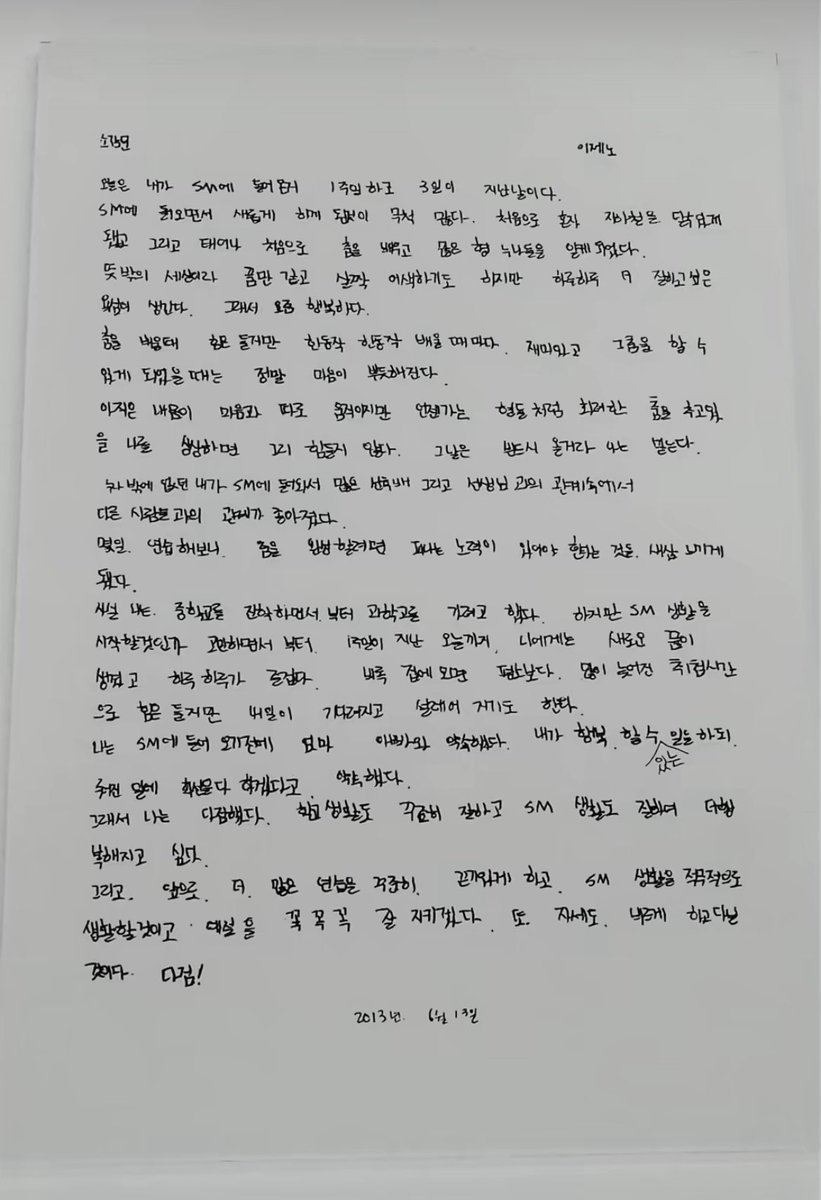 소감문 이제노
오늘은 내가 SM에 들어온지 1주일하고 3일이 지난날이다.
SM에 들어오면서 새롭게 하게 된것이 무척 많다. 처음으로 혼자 지하철을 타게
됐고 그리고 태어나 처음으로 춤을 배우고 많은 형 누나들을 알게 되었다.
뜻밖의 세상이라 꿈만 같고 살짝 어색하기도 하지만 하루하루 더 잘하고 싶은
욕심이 생긴다. 그래서 요즘 행복하다.
춤을 배울때 힘은 들지만 한동작 한동작 배울 때 마다. 재미있고 그춤을 할 수
있게 되었을 때는 정말 마음이 뿌듯해진다.
아직은 내몸이 마음과 따로 움직이지만 언젠가는 형들처럼 화려한 춤을 추고있
을 나를 상상하면 그리 힘들지 않다. 그날은 반드시 올거라 나는 믿는다.
밖에 없던 내가 SM에 들어와서 많은 선후배 그리고 선생님 과의 관계속에서
다른 사람들과의 관계가 좋아졌다.
몇일. 연습해보니. 춤을 완성할려면 피나는 노력이 있어야 한다는 것을. 새삼 느끼게
됐다.
사실 나는. 중학교를 진학하면서.부터 과학고를 가려고 했다. 하지만 SM 생활을
시작할것인가 고민하면서 부터. 1주일이 지난 오늘까지. 나에게는 새로운 꿈이
생겼고 하루 하루가 즐겁다. 비록 집에 오면 피곤하다. 많이 늦어진 취침시간
으로 힘은 들지만 내일이 기다려지고 설레어 지기도 한다.
나는 SM에 들어 오기전에 엄마 아빠와 약속했다. 내가 행복. 할 수 있는 일을 하되.
주어진 일에 최선을다 하겠다고. 약속했다.
그래서 나는 다짐했다. 학교생활도 꾸준히 잘하고 SM 생활도 잘하여 더행
복해지고 싶다.
그리고. 앞으로. 더. 많은 연습을 꾸준히. 끈기있게 하고. SM 생활을 적극적으로
생활할것이고. 예절을 꼭 꼭 꼭 잘 지키겠다. 또. 자세도. 바르게 하고다닐
것이다. 다짐!
2013년. 6월 13일